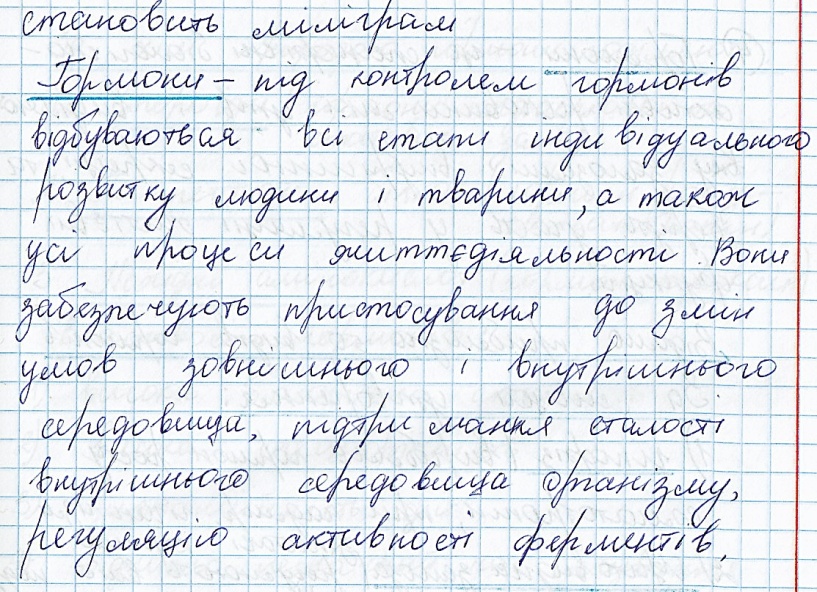 становить міліграм
Гормони – під контролем гормонів
відбуваються всі етапи індивідуального
розвитку людини і тварини, а також
усі процеси життєдіяльності. Вони
забезпечують пристосування до змін
умов зовнішнього і внутрішнього
середовища, підтримання сталості
внутрішнього середовища організму,
регуляцію активності ферментів,